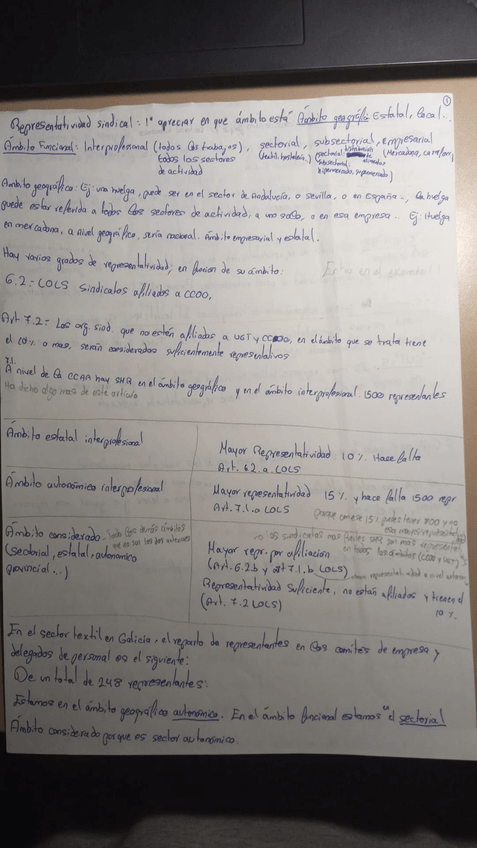 ①
Representatividad sindical: 1º apreciar en que ámbito está Ámbito geográfico Estatal, local..
Ámbito Funcional: Interprofesional (todos los trabajos), sectorial, subsectorial, empresarial
todos los sectores (textil, hostelería,) (Mercadona, carrefour,
de actividad subsectorial: hipermercado, supermercado)
Ámbito geográfico: Ej una huelga, puede ser en el sector de Andalucía, o Sevilla, o en España.., la huelga
puede estar referida a todos los sectores de actividad, a uno solo, o en esa empresa.. Ej: Huelga
en mercadona, a nivel geográfico, sería nacional. Ámbito empresarial y estatal.
Hay varios grados de representatividad, en función de su ámbito:
6.2= LOLS Sindicatos afiliados a CCOO,
Art 7.2= Los org sind. que no estén afiliadas a UGT y CCOO, en el ámbito que se trata tiene
el 10% o mas, serán considerados suficientemente representativos
7.1.
A nivel de la CCAA hay SMR en el ámbito geográfico y en el ámbito interprofesional 1500 representantes
Ha dicho algo mas de este artículo
Ámbito estatal interprofesional
Mayor Representatividad 10%. Hace falta
Art. 6.2.a LOLS
Ámbito autonómico interprofesional
Mayor representatividad 15% y hace falta 1500 repr
Art. 7.1.a LOLS
porque con ese 15% puedes tener 800 y no
Ámbito considerado todo los demás ámbitos
que no son los dos anteriores
(sectorial, estatal, autonómico
provincial...)
en todos los ámbitos (CCOO y UGT)
Mayor repr. por afiliación
(Art. 6.2b y art 7.1.b LOLS)
Representatividad Suficiente, no están afiliados y tienen el
(Art. 7.2 LOLS) 10%.
En el sector textil en Galicia, el reparto de representantes en los comités de empresa y
delegados de personal es el siguiente:
De un total de 248 representantes:
Estamos en el ámbito geográfico autonómico. En el ámbito funcional estamos en el sectorial
Ámbito considerado porque es sector autonómico.